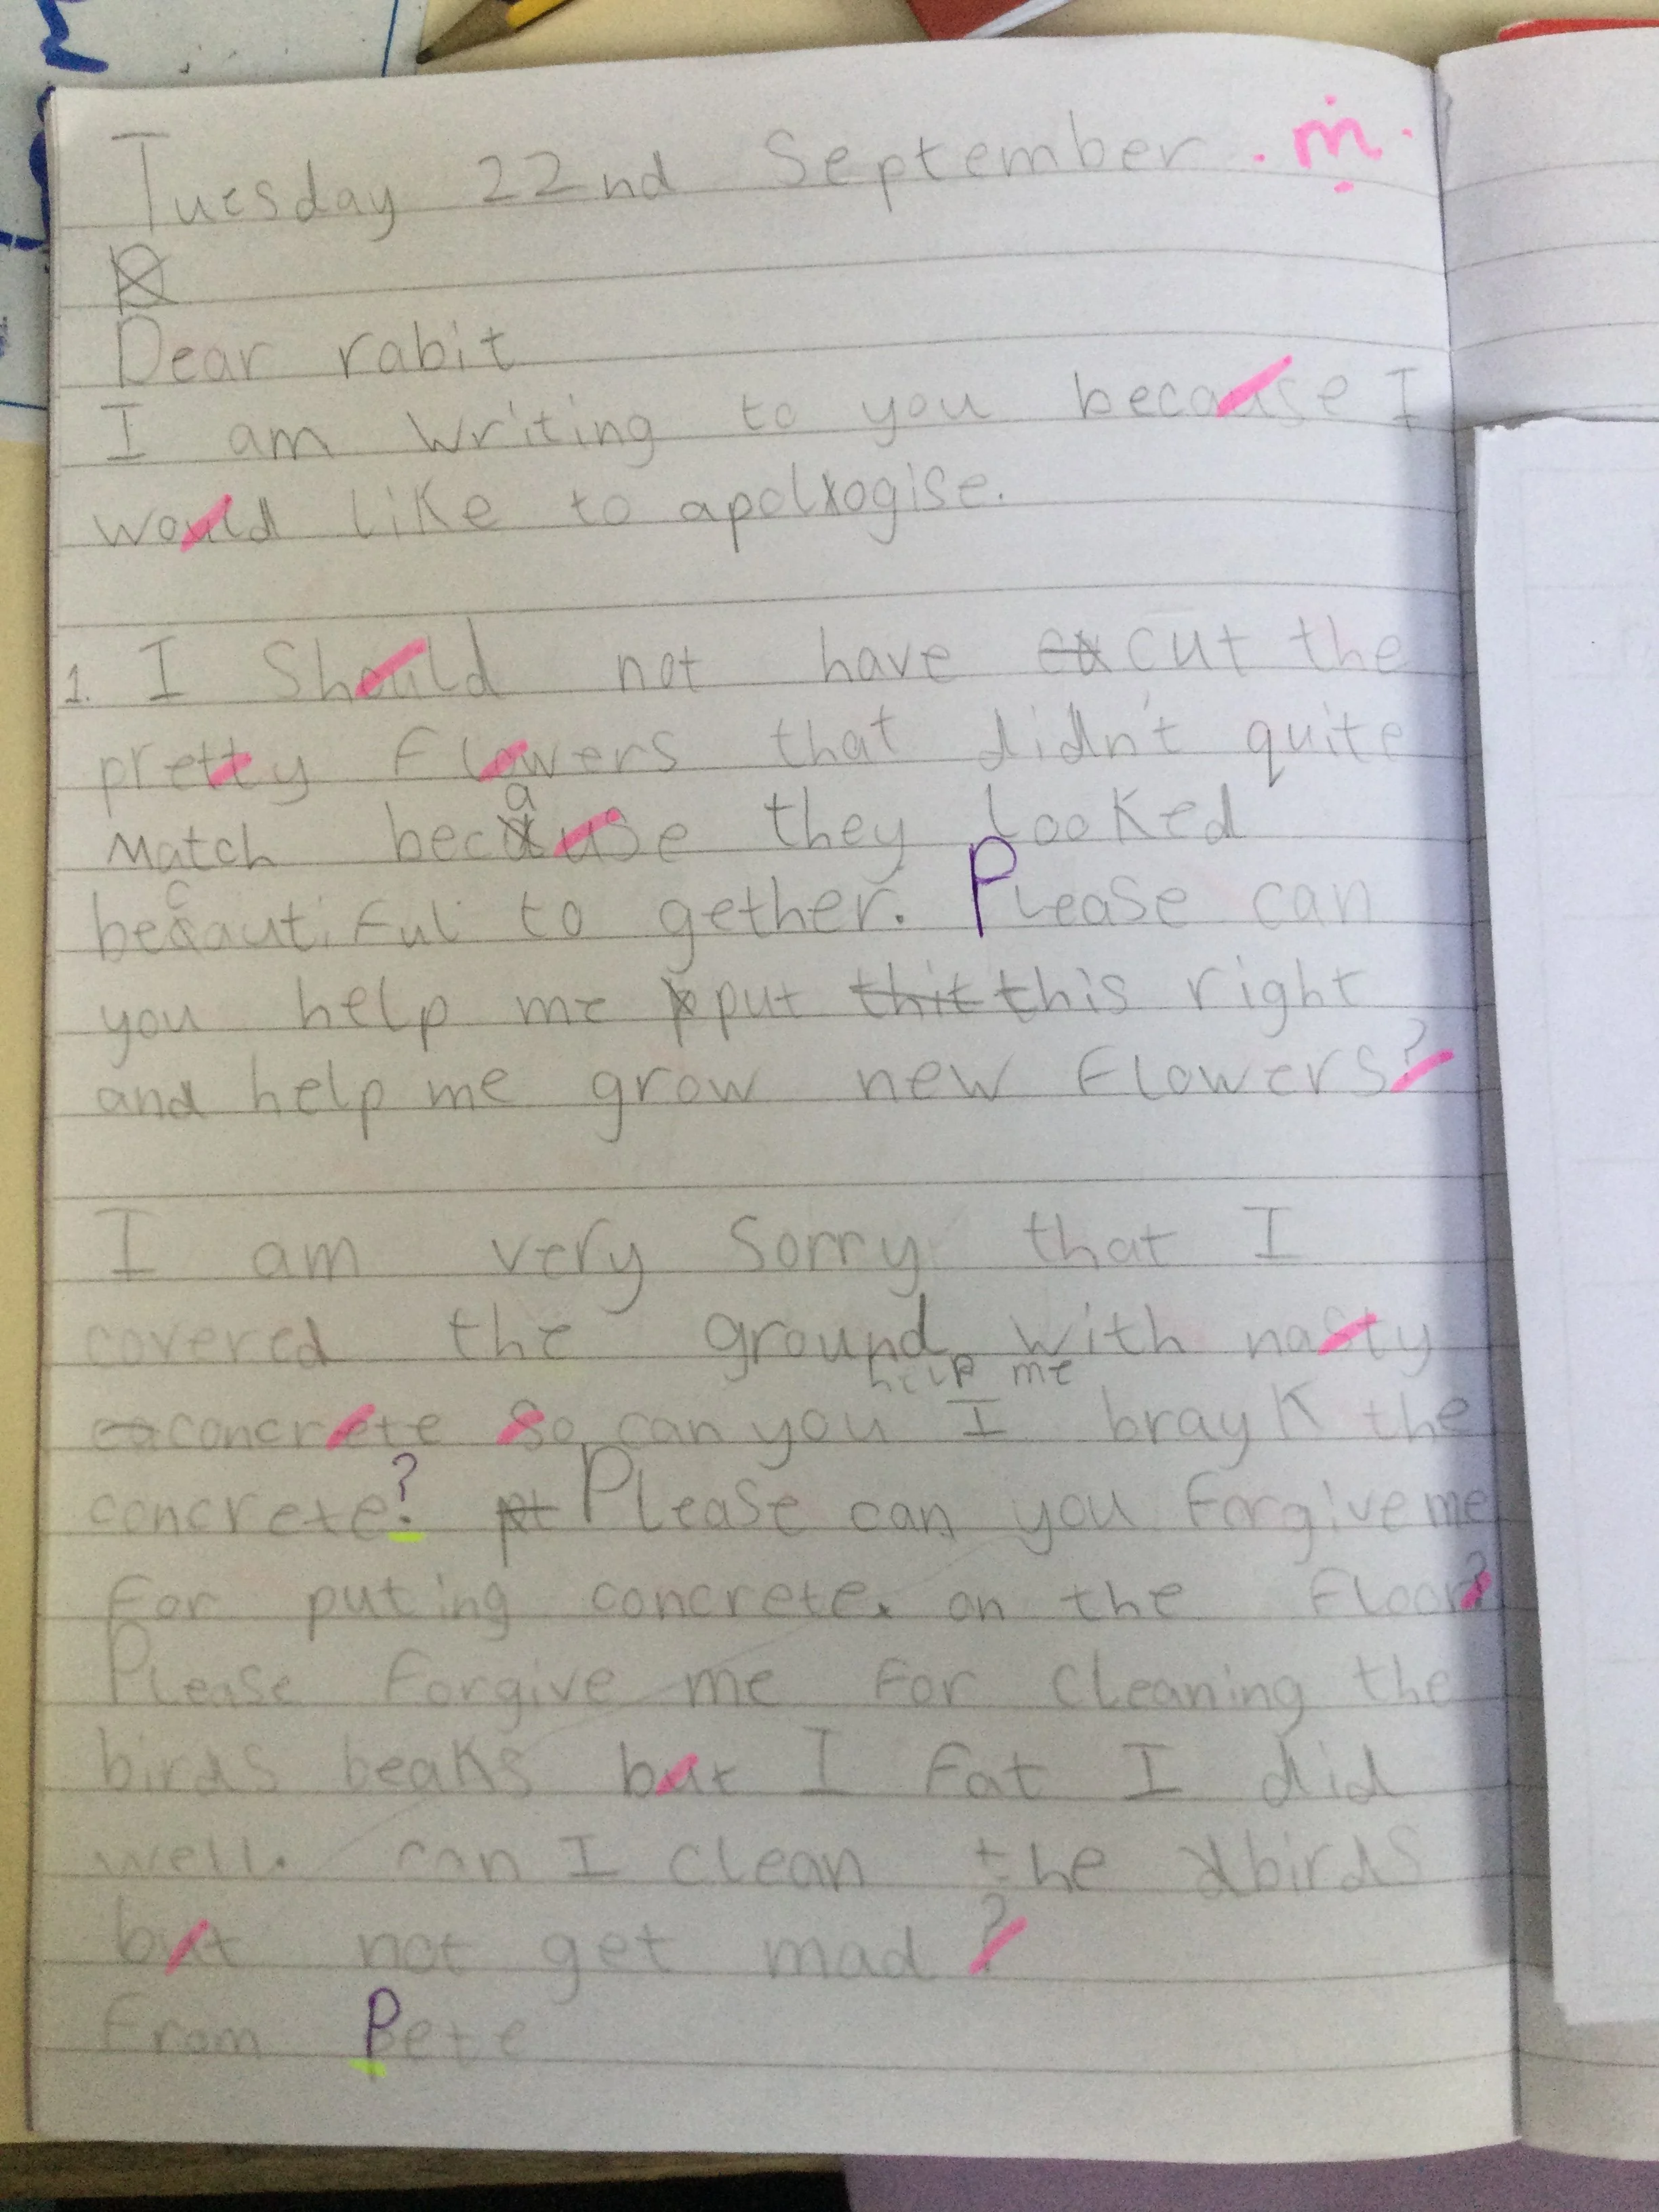 Tuesday 22nd September . m .
Dear rabit
I am writing to you because I
would like to apologise.
1. I Should not have cut the
pretty flowers that didn't quite
Match because they looked
beautiful to gether. Please can
you help me put this right
and help me grow new flowers?
I am very Sorry that I
covered the ground with nasty
help me
concrete So can you I brayk the
concrete? Please can you forgive me
for puting concrete. on the floor?
Please forgive me for cleaning the
birds beaks but I fat I did
well. can I clean the birds
but not get mad?
from Pete